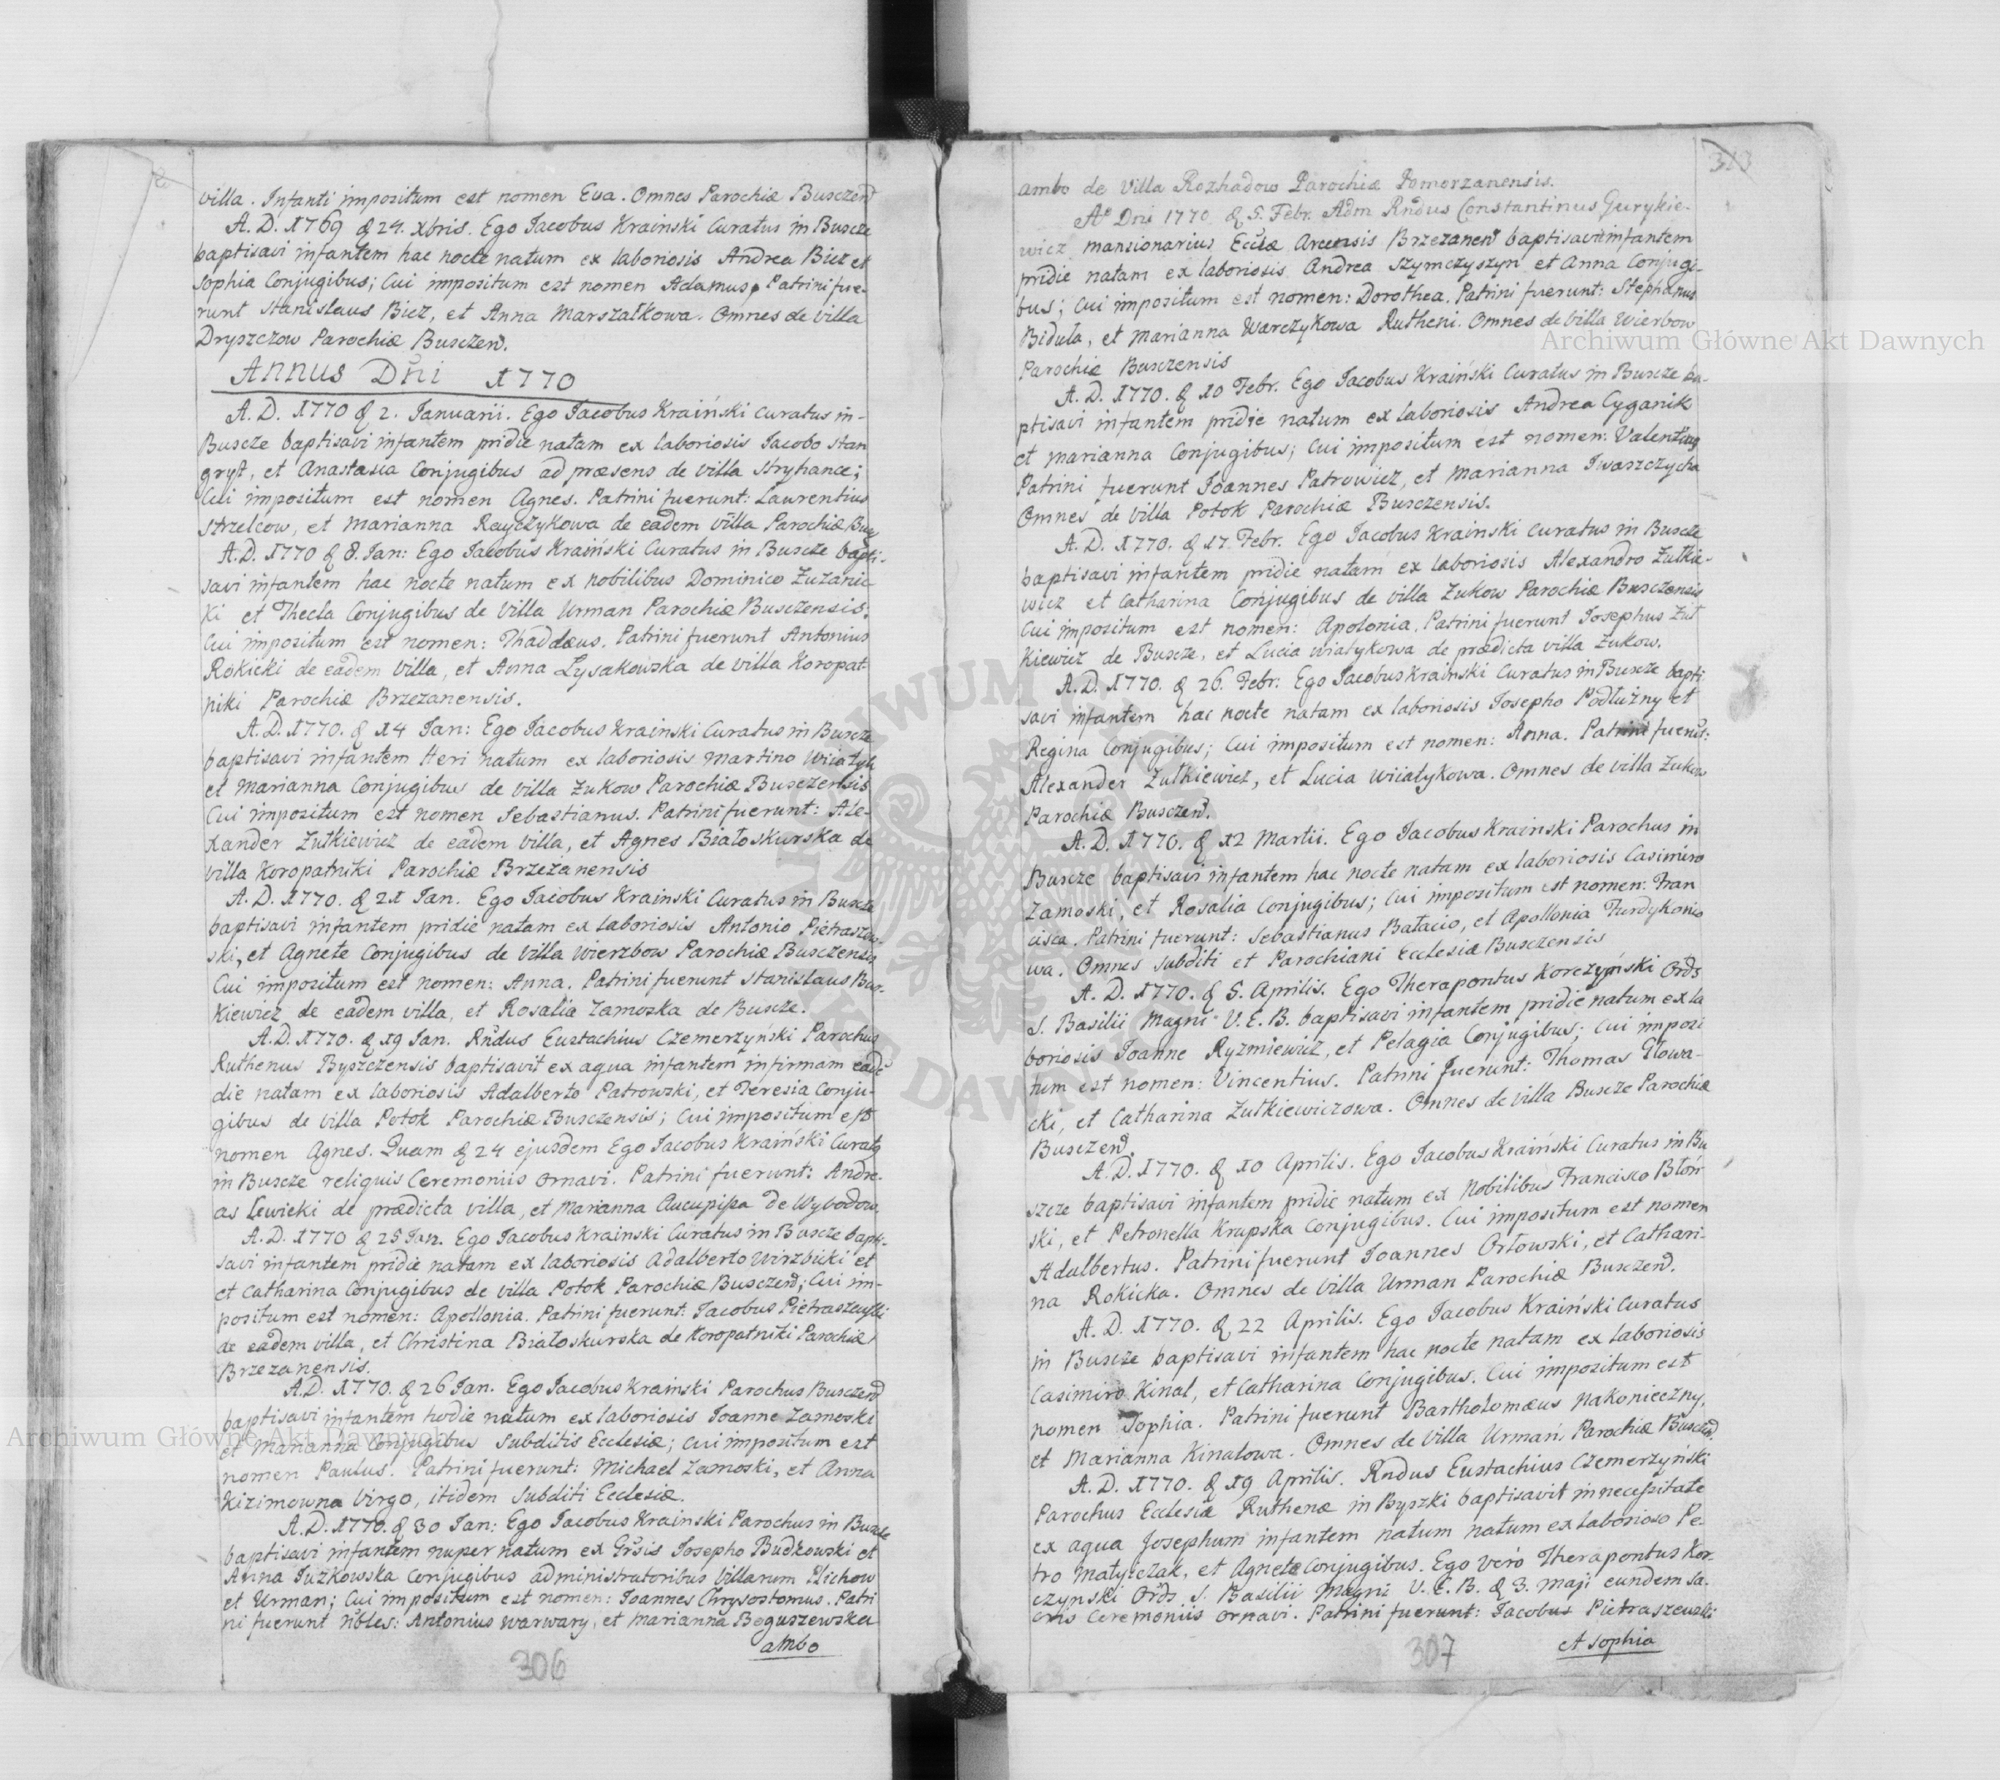 villa. Infanti impositum est nomen Eva. Omnes Parochiæ Busczen̄
A. D. 1769 d 24. xbris. Ego Jacobus Kraiński Curatus in Buscze
baptisavi infantem hac nocte natum ex laboriosis Andrea Biez et
Sophia Conjugibus; Cui impositum est nomen Adamus, Patrini fue-
runt Stanislaus Biez, et Anna Marszałkowa. Omnes de villa
Dryszczow Parochiæ Busczen̄.
Annus Dn̄i 1770
A. D. 1770 d 2. Januarii. Ego Jacobus Kraiński Curatus in-
Buscze baptisavi infantem pridie natam ex laboriosis Jacobo Stan
gryt, et Anastasia Conjugibus ad præsens de villa Stryhance;
Cui impositum est nomen Agnes. Patrini fuerunt: Laurentius
Strzelcow, et Marianna Rayczykowa de eadem villa Parochiæ Bus
A. D. 1770 d 8. Jan: Ego Jacobus Kraiński Curatus in Buscze bapti-
savi infantem hac nocte natum ex nobilibus Dominico Zuzanic
ki et Thecla Conjugibus de villa Urman Parochiæ Busczensis:
Cui impositum est nomen: Thaddæus. Patrini fuerunt Antonius
Rokicki de eadem villa, et Anna Lysakowska de villa Koropat
niki Parochiæ Brzezanensis.
A. D. 1770. d 14 Jan: Ego Jacobus Kraiński Curatus in Buscze
baptisavi infantem Heri natum ex laboriosis Martino Wiiatyk
et Marianna Conjugibus de villa Zukow Parochiæ Busczensis
Cui impositum est nomen Sebastianus. Patrini fuerunt: Ale-
xander Zutkiewicz de eadem villa, et Agnes Białoskurska de
villa Koropatniki Parochiæ Brzezanensis
A. D. 1770. d 21 Jan. Ego Jacobus Kraiński Curatus in Buscze
baptisavi infantem pridie natam ex laboriosis Antonio Pietraszew-
ski, et Agnete Conjugibus de villa Wierzbow Parochiæ Busczensis
Cui impositum est nomen: Anna. Patrini fuerunt Stanislaus Bur-
kiewicz de eadem villa, et Rosalia Zamoska de Buscze.
A. D. 1770. d 19 Jan. Rn̄dus Eustachius Czemerzyński Parochus
Ruthenus Byszczensis baptisavit ex aqua infantem infirmam eadē
die natam ex laboriosis Adalberto Patrowski, et Teresia Conju-
gibus de villa Potok Parochiæ Busczensis; Cui impositum est
nomen Agnes. Quam d 24 ejusdem Ego Jacobus Kraiński Curatus
in Buscze reliquis Ceremoniis ornavi. Patrini fuerunt: Andre-
as Lewicki de prædicta villa, et Marianna Aucupissa de Wybodow.
A. D. 1770 d 25 Jan. Ego Jacobus Kraiński Curatus in Buscze bapti-
savi infantem pridie natam ex laboriosis Adalberto Wirzbicki et
et Catharina Conjugibus de villa Potok Parochiæ Busczen̄; Cui im-
positum est nomen: Apollonia. Patrini fuerunt: Jacobus Pietraszewski
de eadem villa, et Christina Białoskurska de Koropatniki Parochiæ
Brzezanensis.
A. D. 1770. d 26 Jan. Ego Jacobus Kraiński Parochus Busczen̄
baptisavi infantem hodie natum ex laboriosis Joanne Zamoski
et Marianna Conjugibus Subditis Ecclesiæ; Cui impositum est
nomen Paulus. Patrini fuerunt: Michael Zamoski, et Anna
Kizimowna Virgo, itidem Subditi Ecclesiæ.
A. D. 1770. d 30 Jan: Ego Jacobus Kraiński Parochus in Buscze
baptisavi infantem nuper natum ex Gr̄sis Josepho Budkowski et
Anna Juzkowska Conjugibus administratoribus Villarum Plichow
et Urman; Cui impositum est nomen: Joannes Chrysostomus. Patri
ni fuerunt Nbles: Antonius Warwary, et Marianna Boguszewska
ambo
306
313
ambo de Villa Rozhadow Parochiæ Pomorzanensis.
Aº Dni 1770 d 5. Febr. Adm Rndus Constantinus Gurykie-
wicz mansionarius Eccłæ Arcensis Brzezanen̄ baptisavit infantem
pridie natam ex laboriosis Andrea Szymczyszyn et Anna Conjugi-
bus; Cui impositum est nomen: Dorothea. Patrini fuerunt: Stephanus
Biduła, et Marianna Warczykowa Rutheni. Omnes de villa Wierbow
Parochiæ Busczensis
A. D. 1770. d 10 Febr. Ego Jacobus Kraiński Curatus in Buscze ba-
ptisavi infantem pridie natum ex laboriosis Andrea Cyganik
et Marianna Conjugibus; Cui impositum est nomen: Valentinus
Patrini fuerunt Joannes Patrowicz, et Marianna Iwaszczycha
Omnes de villa Potok Parochiæ Busczensis.
A. D. 1770. d 17. Febr. Ego Jacobus Kraiński Curatus in Buscze
baptisavi infantem pridie natam ex laboriosis Alexandro Zutkie-
wicz et Catharina Conjugibus de villa Zukow Parochiæ Busczensis
Cui impositum est nomen: Apolonia. Patrini fuerunt Josephus Zut
kiewicz de Buscze, et Lucia Wiatykowa de prædicta villa Zukow.
A. D. 1770. d 26. Febr: Ego Jacobus Kraiński Curatus in Buscze bapti
savi infantem hac nocte natam ex laboriosis Josepho Podłużny et
Regina Conjugibus; Cui impositum est nomen: Anna. Patrini fuerūt:
Alexander Zutkiewicz, et Lucia Wiiatykowa. Omnes de villa Zukow
Parochiæ Busczen̄.
A. D. 1770. d 12 Martii. Ego Jacobus Kraiński Parochus in
Buscze baptisavi infantem hac nocte natam ex laboriosis Casimiro
Zamoski, et Rosalia Conjugibus; Cui impositum est nomen: Fran
cisca. Patrini fuerunt: Sebastianus Batacio, et Apollonia Furdykonio
wa. Omnes Subditi et Parochiani Ecclesiæ Busczensis
A. D. 1770. d 5. Aprilis. Ego Therapontus Korczyński Ord̄s
S. Basilii Magni V. E. B. baptisavi infantem pridie natum ex la
boriosis Joanne Ryzmiewicz, et Pelagia Conjugibus; Cui imposi
tum est nomen: Vincentius. Patrini fuerunt: Thomas Głowa-
cki, et Catharina Zutkiewiczowa. Omnes de villa Buscze Parochiæ
Busczen̄.
A. D. 1770. d 10 Aprilis. Ego Jacobus Kraiński Curatus in Bu
szcze baptisavi infantem pridie natum ex Nobilibus Francisco Błoń
ski, et Petronella Krupska Conjugibus. Cui impositum est nomen
Adalbertus. Patrini fuerunt Joannes Orłowski, et Cathari-
na Rokicka. Omnes de villa Urman Parochiæ Busczen̄.
A. D. 1770. d 22 Aprilis. Ego Jacobus Kraiński Curatus
in Buscze baptisavi infantem hac nocte natam ex laboriosis
Casimiro Kinal, et Catharina Conjugibus. Cui impositum est
nomen Sophia. Patrini fuerunt Bartholomæus Nakonieczny,
et Marianna Kinalowa. Omnes de villa Urmań Parochiæ Busczen̄.
A. D. 1770. d 19 Aprilis. Rndus Eustachius Czemerzyński
Parochus Ecclesiæ Ruthenæ in Byszki baptisavit in necessitate
ex aqua Josephum infantem natum natum ex laborioso Pe-
tro Matyiczak, et Agnete Conjugibus. Ego vero Therapontus Kor-
czynski Ord̄s S. Basilii Magni V. E. B. d 3. Maji eundem sa-
cris Ceremoniis ornavi. Patrini fuerunt: Jacobus Pietraszewski
et Sophia
307
Archiwum Główne Akt Dawnych
Archiwum Główne Akt Dawnych